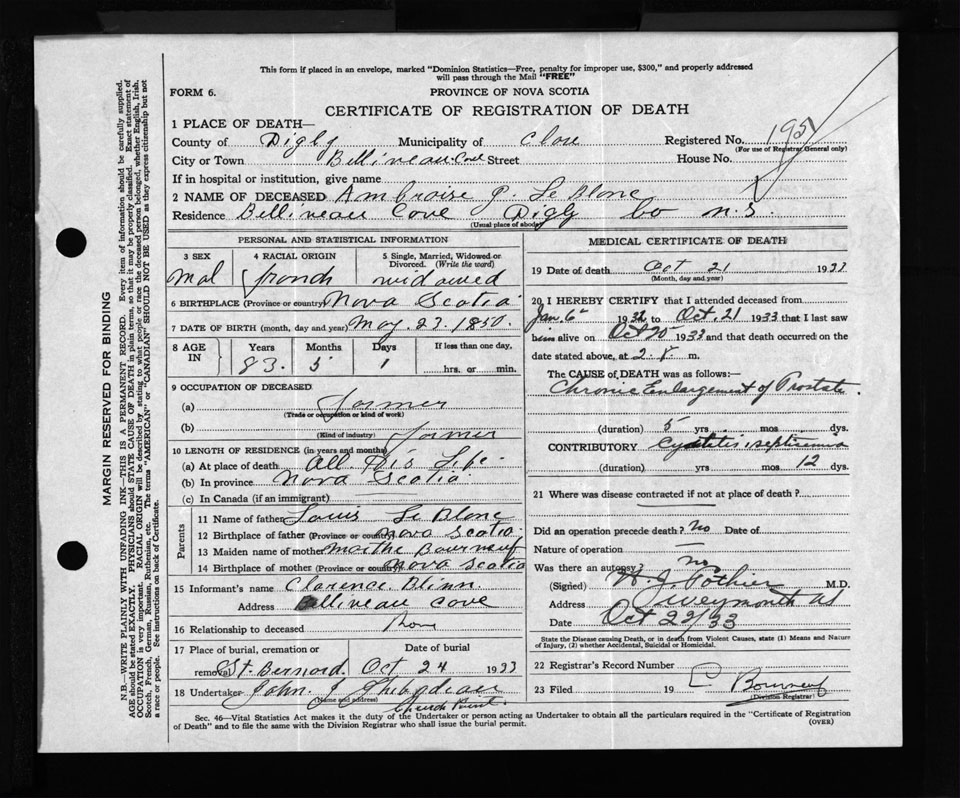 This form if placed in an envelope, marked "Dominion Statistics—Free, penalty for improper use, $300," and properly addressed
will pass through the Mail "FREE"
FORM 6.
PROVINCE OF NOVA SCOTIA
CERTIFICATE OF REGISTRATION OF DEATH
1 PLACE OF DEATH—
County of Digby Municipality of Clare Registered No. 1951
(For use of Registrar General only)
City or Town Bellineau Cove Street House No.
If in hospital or institution, give name
2 NAME OF DECEASED Ambroise P. Le Blanc
Residence Bellineau Cove Digby Co N.S.
(Usual place of abode)
PERSONAL AND STATISTICAL INFORMATION
3 SEX Mal
4 RACIAL ORIGIN french
5 Single, Married, Widowed or Divorced. (Write the word) widowed
6 BIRTHPLACE (Province or country) Nova Scotia
7 DATE OF BIRTH (month, day and year) May. 23. 1850.
8 AGE IN Years 83. Months 5 Days 1 If less than one day, hrs. or min.
9 OCCUPATION OF DECEASED
(a) farmer
(Trade or occupation or kind of work)
(b) farmer
(Kind of industry)
10 LENGTH OF RESIDENCE (in years and months)
(a) At place of death All His Life
(b) In province Nova Scotia
(c) In Canada (if an immigrant)
Parents
11 Name of father Louis Le Blanc
12 Birthplace of father (Province or country) Nova Scotia
13 Maiden name of mother Marthe Bourneuf
14 Birthplace of mother (Province or country) Nova Scotia
15 Informant's name Clarence Blinn.
Address Bellineau Cove
16 Relationship to deceased None
17 Place of burial, cremation or removal St. Bernard. Date of burial Oct 24 1933
18 Undertaker John. J Thibodeau
(Name and address) Church Point.
MEDICAL CERTIFICATE OF DEATH
19 Date of death Oct 21 1933
(Month, day and year)
20 I HEREBY CERTIFY that I attended deceased from
Jan. 6 1932 to Oct. 21 1933 that I last saw
him alive on Oct 20 1933 and that death occurred on the
date stated above, at 2. m.
The CAUSE of DEATH was as follows:—
Chronic Enlargement of Prostate
(duration) 5 yrs. mos. dys.
CONTRIBUTORY Cystitis, septicemia
(duration) yrs. mos. 12 dys.
21 Where was disease contracted if not at place of death?
Did an operation precede death? No Date of
Nature of operation
Was there an autopsy? No
(Signed) W. J. Pothier M.D.
Address Weymouth NS
Date Oct 22/33
State the Disease causing Death, or in death from Violent Causes, state (1) Means and Nature
of Injury, (2) whether Accidental, Suicidal or Homicidal.
22 Registrar's Record Number
23 Filed 19 Bourneuf
(Division Registrar)
Sec. 46—Vital Statistics Act makes it the duty of the Undertaker or person acting as Undertaker to obtain all the particulars required in the "Certificate of Registration
of Death" and to file the same with the Division Registrar who shall issue the burial permit.
(OVER)
MARGIN RESERVED FOR BINDING
N.B.—WRITE PLAINLY WITH UNFADING INK—THIS IS A PERMANENT RECORD. Every item of information should be carefully supplied.
AGE should be stated EXACTLY. PHYSICIANS should STATE CAUSE OF DEATH in plain terms, so that it may be properly classified. Exact statement of
OCCUPATION is very important. RACIAL ORIGIN will be described by stating to what people or race the deceased person belonged, whether English, Irish,
Scotch, French, German, Russian, Ruthenian, etc. The terms "AMERICAN" or "CANADIAN" SHOULD NOT BE USED as they express citizenship but not
a race or people. See instructions on back of Certificate.